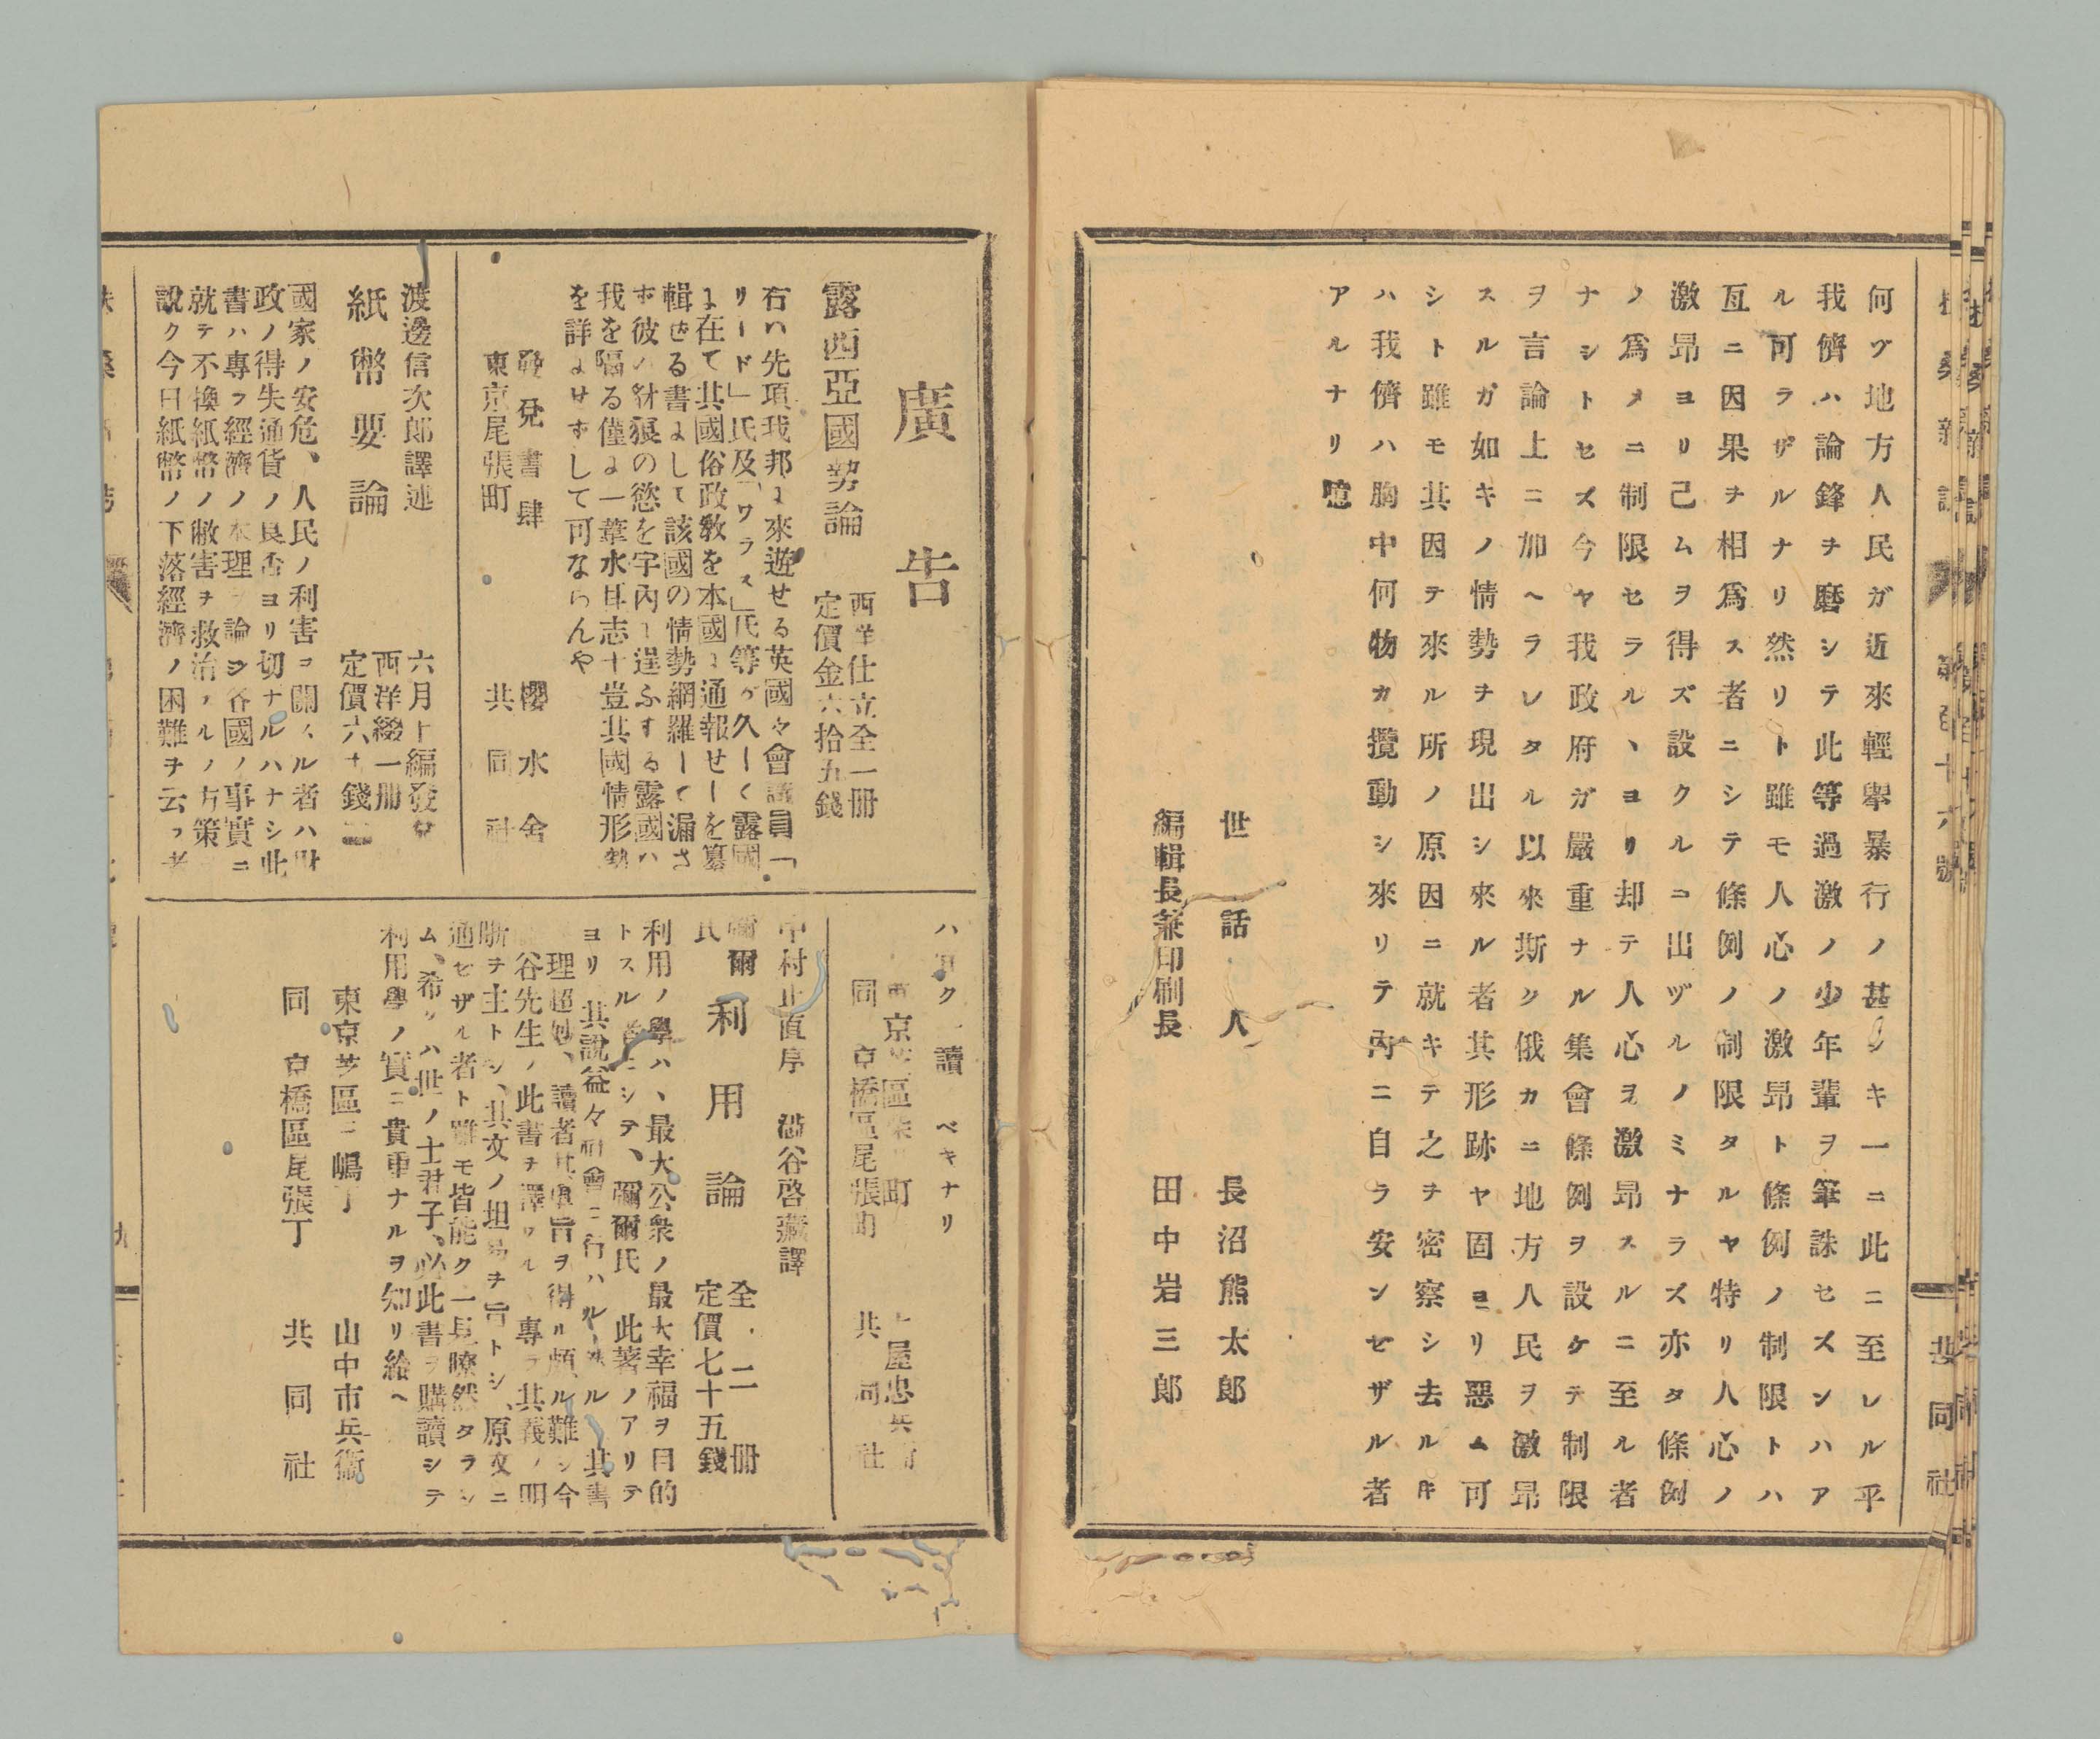 扶桑新誌 第百十六號 共同社
何ヅ地方人民ガ近來輕擧暴行ノ甚シキ一ニ此ニ至レル乎
我儕ハ論鋒ヲ磨シテ此等過激ノ少年輩ヲ筆誅セズンハア
ル可ラザルナリ然リト雖モ人心ノ激昂ト條例ノ制限トハ
亙ニ因果ヲ相爲ス者ニシテ條例ノ制限タルヤ特リ人心ノ
激昂ヨリ己ムヲ得ズ設クルコ出ヅルノミナラズ亦タ條例
ノ爲メニ制限セラルヽヨリ却テ人心ヲ激昂スルニ至ル者
ナシトセズ今ヤ我政府ガ嚴重ナル集會條例ヲ設ケテ制限
ヲ言論上ニ加ヘラレタル以來斯ク俄カニ地方人民ヲ激昂
スルガ如キノ情勢ヲ現出シ來ル者其形跡ヤ固ヨリ惡ム可
シト雖モ其因テ來ル所ノ原因ニ就キテ之ヲ密察シ去ルキ
ハ我儕ハ胸中何物カ攪動シ來リテ內ニ自ラ安ンゼザル者
アルナリ噫
世話人 長沼熊太郎
編輯長兼印刷長 田中岩三郎
廣告
露西亞國勢論
西洋仕立全一冊
定價金六拾九錢
右ハ先項我邦に來遊せる英國々會議員「
リード」氏及「ワラス」氏等が久しく露國
に在て其國俗政敎を本國に通報せしを纂
輯せる書にして該國の情勢網羅して漏さ
ず彼の豺狼の慾を宇內に逞ふする露國ハ
我を隔る僅に一葦水耳志士豈其國情形勢
を詳にせずして可ならんや
發兌書肆 櫻水舍
東京尾張町 共同社
渡邊信次郎譯述
紙幣要論
六月上編發兌
西洋綴一冊
定價六十錢
國家ノ安危、人民ノ利害ニ關スル者ハ財
政ノ得失通貨ノ良否ヨリ切ナルハナシ此
書ハ專ラ經濟ノ本理ヲ論シ各國ノ事實ニ
就テ不換紙幣ノ敝害ヲ救治スルノ方策
說ク今日紙幣ノ下落經濟ノ困難ヲ云フ者
ハ 讀 ベキナリ
同 京橋區尾張町 共同社
中村正直序 澁谷啓藏譯
彌爾氏 利用論
全二冊
定價七十五錢
利用ノ學ハ、最大公衆ノ最大幸福ヲ目的
トスル シテ、彌爾氏 此著ノアリテ
ヨリ 其說益々社會ニ行ハル 其書
理超妙、讀者其眞旨ヲ得ル頗ル難シ今
谷先生ノ此書ヲ譯スル 專ラ其義ノ明
晰ヲ主トシ、其文ノ坦易ヲ旨トシ、原文ニ
通ゼザル者ト雖モ皆能ク一見瞭然タラシ
ム、希クハ世ノ士君子、必此書ヲ購讀シテ
利用學ノ實ニ貴重ナルヲ知リ給ヘ
東京芝區三嶋丁 山中市兵衞
同 京橋區尾張丁 共同社